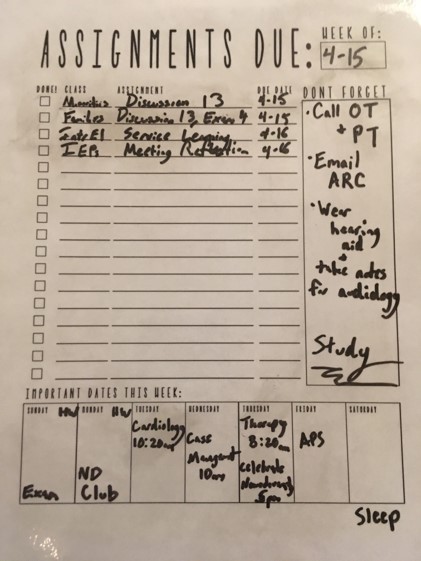 ASSIGNMENTS DUE:
WEEK OF:
4-15
DONE! CLASS ASSIGNMENT DUE DATE
Minorities Discussion 13 4-15
Families Discussion 13, Exam 4 4-15
Service Learning 4-16
IEPs Meeting Reflection 4-16
DONT FORGET
·Call OT
+ PT
·Email
ARC
·Wear
hearing
aid
+
take notes
for audiology
Study
IMPORTANT DATES THIS WEEK:
SUNDAY HW
Exam
MONDAY HW
ND
Club
TUESDAY
Cardiology
10:20am
WEDNESDAY
Case
10am
THURSDAY
Therapy
8:20am
Celebrate
Neurodiversity
5pm
FRIDAY
APS
SATURDAY
Sleep